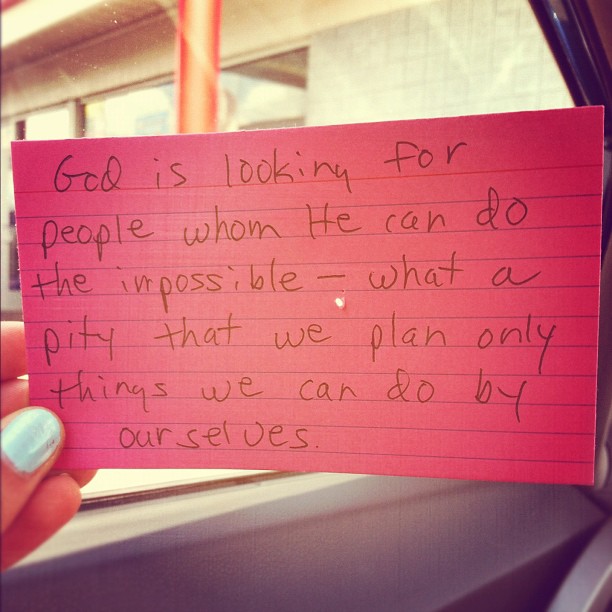 God is looking for
people whom He can do
the impossible – what a
pity that we plan only
things we can do by
ourselves.